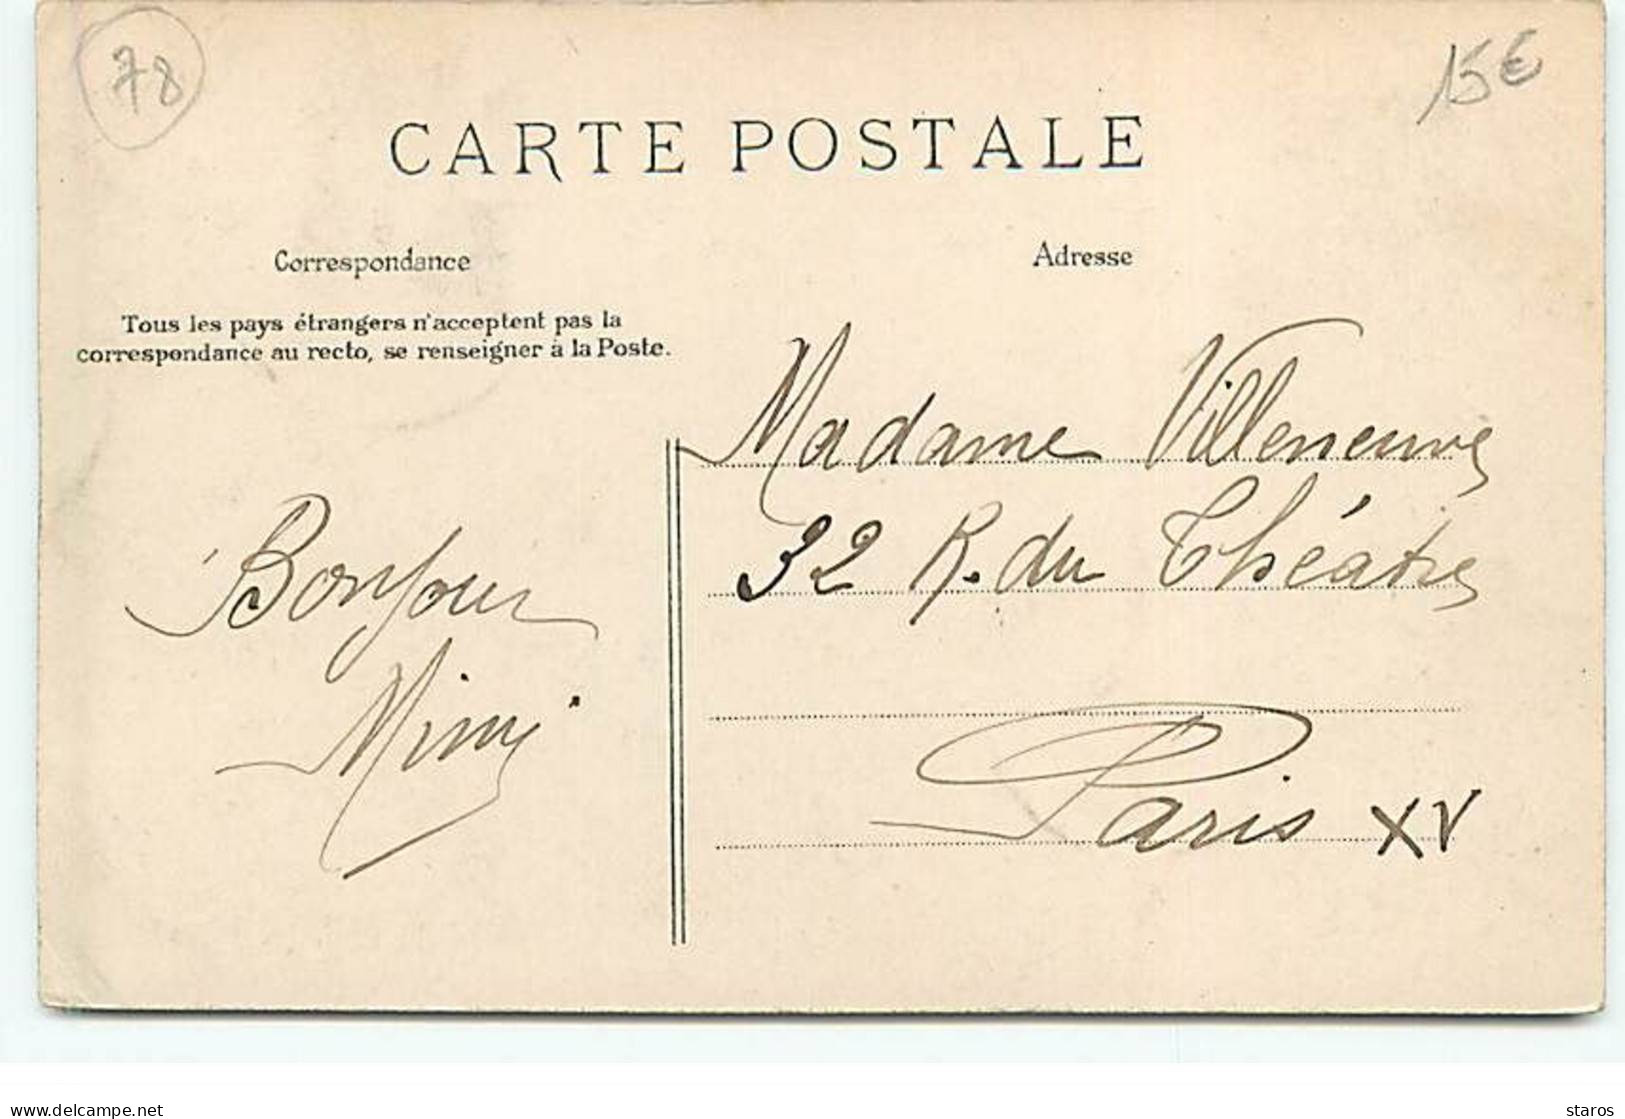 78
15€
CARTE POSTALE
Correspondance
Adresse
Tous les pays étrangers n'acceptent pas la
correspondance au recto, se renseigner à la Poste.
Madame Villeneuve
32 R. du Théâtre
Paris XV
Bonjour
Mimi
delcampe.net
staros